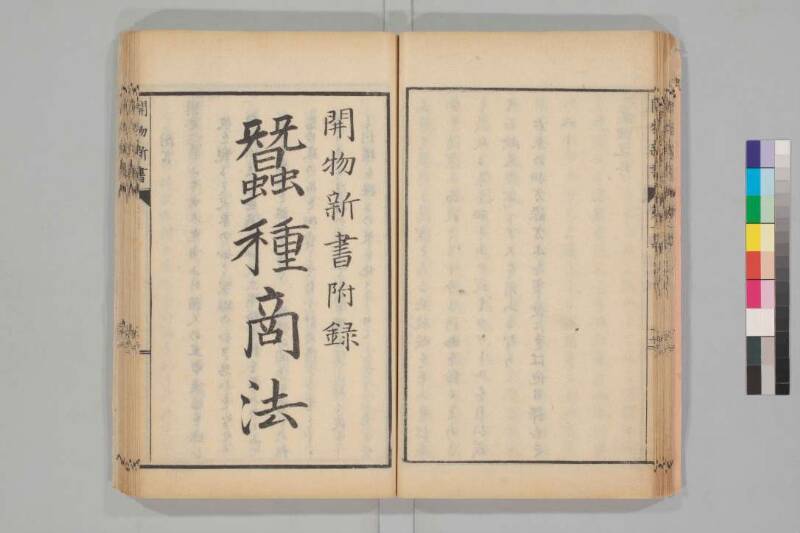 開物新書附録
蠶種商法
開物新書